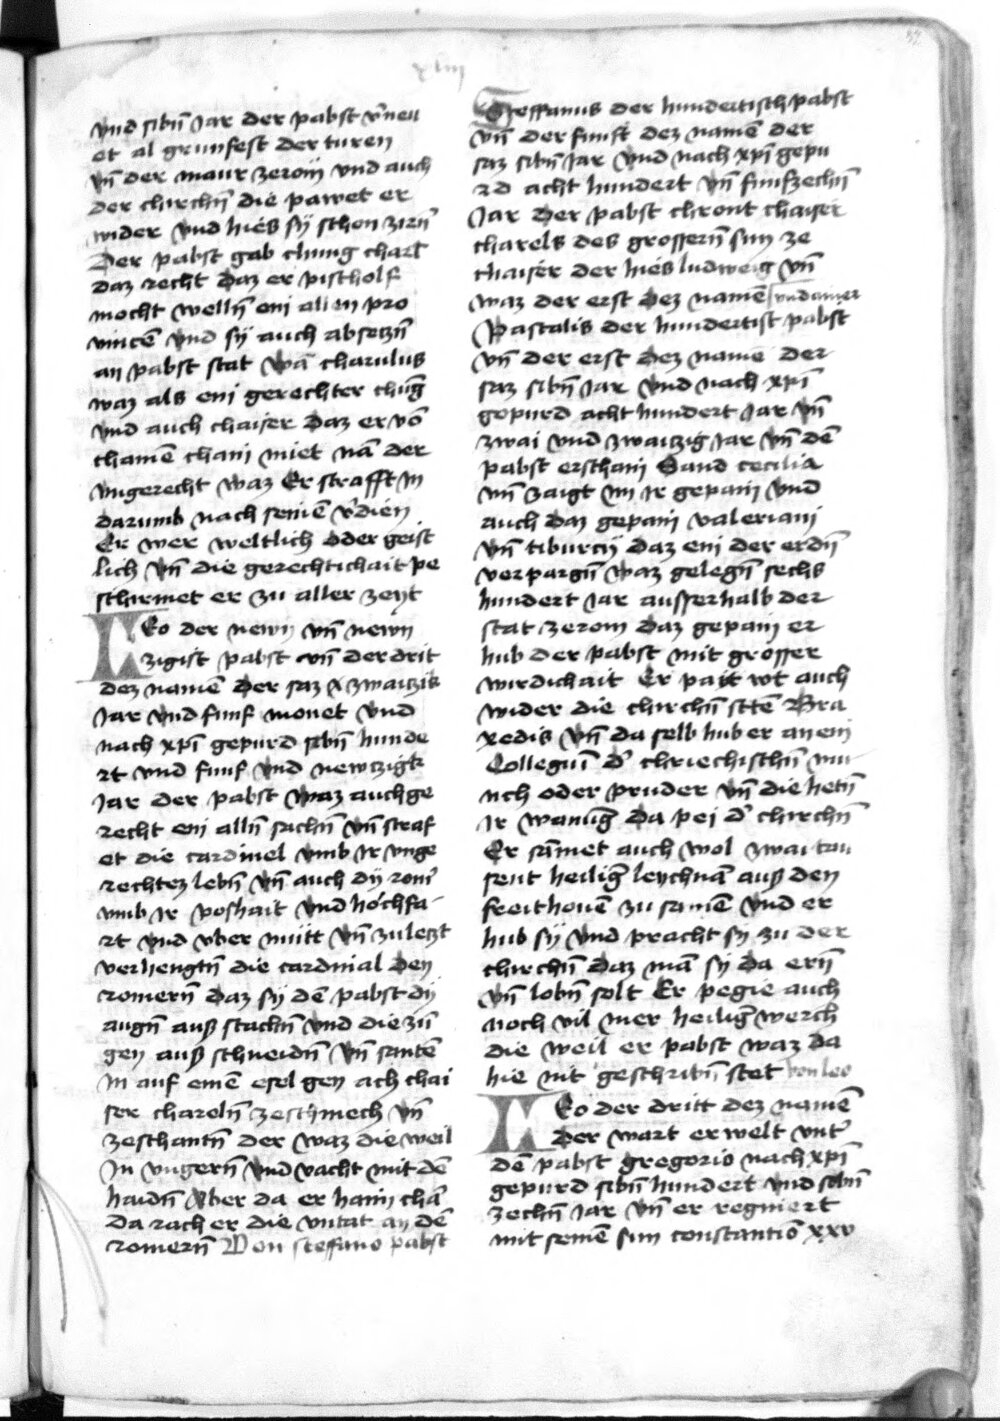 xliij
57
vnd sibn̄ Jar der pabst v̓neu
et al grunfest der turen
vn̄ der maur zerom vnd auch
der chirchn̄ die pawet er
wider vnd hies sÿ schon zirn̄
Der pabst gab chung charl
daz recht daz er pischolf
mocht welln̄ eni allen pro
uincē vnd sÿ auch absetzn̄
an pabst stat wā charulus
waz als eni gerechter chūg
vnd auch chaiser daz er vō
chainē chani miet nā der
vngerecht waz Er strafft in
darumb nach seinē v̓dien
Er wer weltlich oder geist
lich vn̄ die gerechtichait pe
schirmet er zu aller zeyt
LEo der newn vn̄ newn
zigist pabst vn̄ der drit
dez namē der saz x zwaitzik
Jar vnd funf monet vnd
nach xp̄i gepurd sibn̄ hunde
rt vnd funf vnd newtzigk
Jar der pabst waz auch ge
recht eni alln̄ sachn̄ vn̄ straf
et die cardinel vmb Jr vnge
rechtez lebn̄ vn̄ auch dÿ rom̄
vmb Jr poshait vnd hochfa
rt vnd vber mutt vn̄ zuletzt
verhengtn̄ die cardinal den
romern̄ daz sÿ dē pabst dÿ
augn̄ auß stachn̄ vnd die zū
gen auß schneidn̄ vn̄ santē
in auf einē esel gen ach chai
ser chareln̄ zeschmech vn̄
zeschantn̄ der waz die weil
Jn vngern̄ vnd vacht mit dē
haidn̄ Aber da er haim chā
da rach er die vntat an dē
romern̄ Von steffano pabst
Steffanus der hundertisch pabst
vn̄ der funft dez namē der
saz sibn̄ Jar vnd nach xp̄i gepu
rd acht hundert vn̄ funfzechn̄
Jar Der pabst chront chaiser
charels des grossern̄ sun ze
chaiser der hies ludweig vn̄
waz der erst dez namē vnd ainer
Pascalis der hundertist pabst
vn̄ der erst dez name der
saz sibn̄ Jar vnd nach xp̄i
gepurd acht hundert Jar vn̄
zwai vnd zwaizig Jar vn̄ dē
pabst erschani Sand cecilia
vn̄ zaigt im Jr gepain vnd
auch daz gepani valeriani
vn̄ tiburcÿ daz eni der erdn̄
verpargn̄ waz gelegn̄ sechs
hundert Jar ausserhalb der
stat zerom daz gepain er
hub der pabst mit grosser
wirdichait Er pawt auch
wider die chirchn̄ Bra
xedis vn̄ da selb hub er an eni
Collegiū d̓ chriechischn̄ mu
nch oder pruder vn̄ die hetn̄
Jr wanūg da pei d̓ chirchn̄
Er sāmet auch wol zwai tau
sent heiliḡ leychnā auß den
freithouē zu samē vnd er
hub sÿ vnd pracht sÿ zu der
chirchn̄ daz mā sÿ da ern̄
vn̄ lobn̄ solt Er pegie auch
noch vil mer heiliḡ werch
die weil er pabst waz da
hie nit geschribn̄ stet von leo
LEo der dritt dez namē
der wart erwelt vnt̓
dē pabst gregorio nach xp̄i
gepurd sibn̄ hundert vnd sibn̄
zechn̄ Jar vn̄ er regniert
mit seinē sun constantio xxv